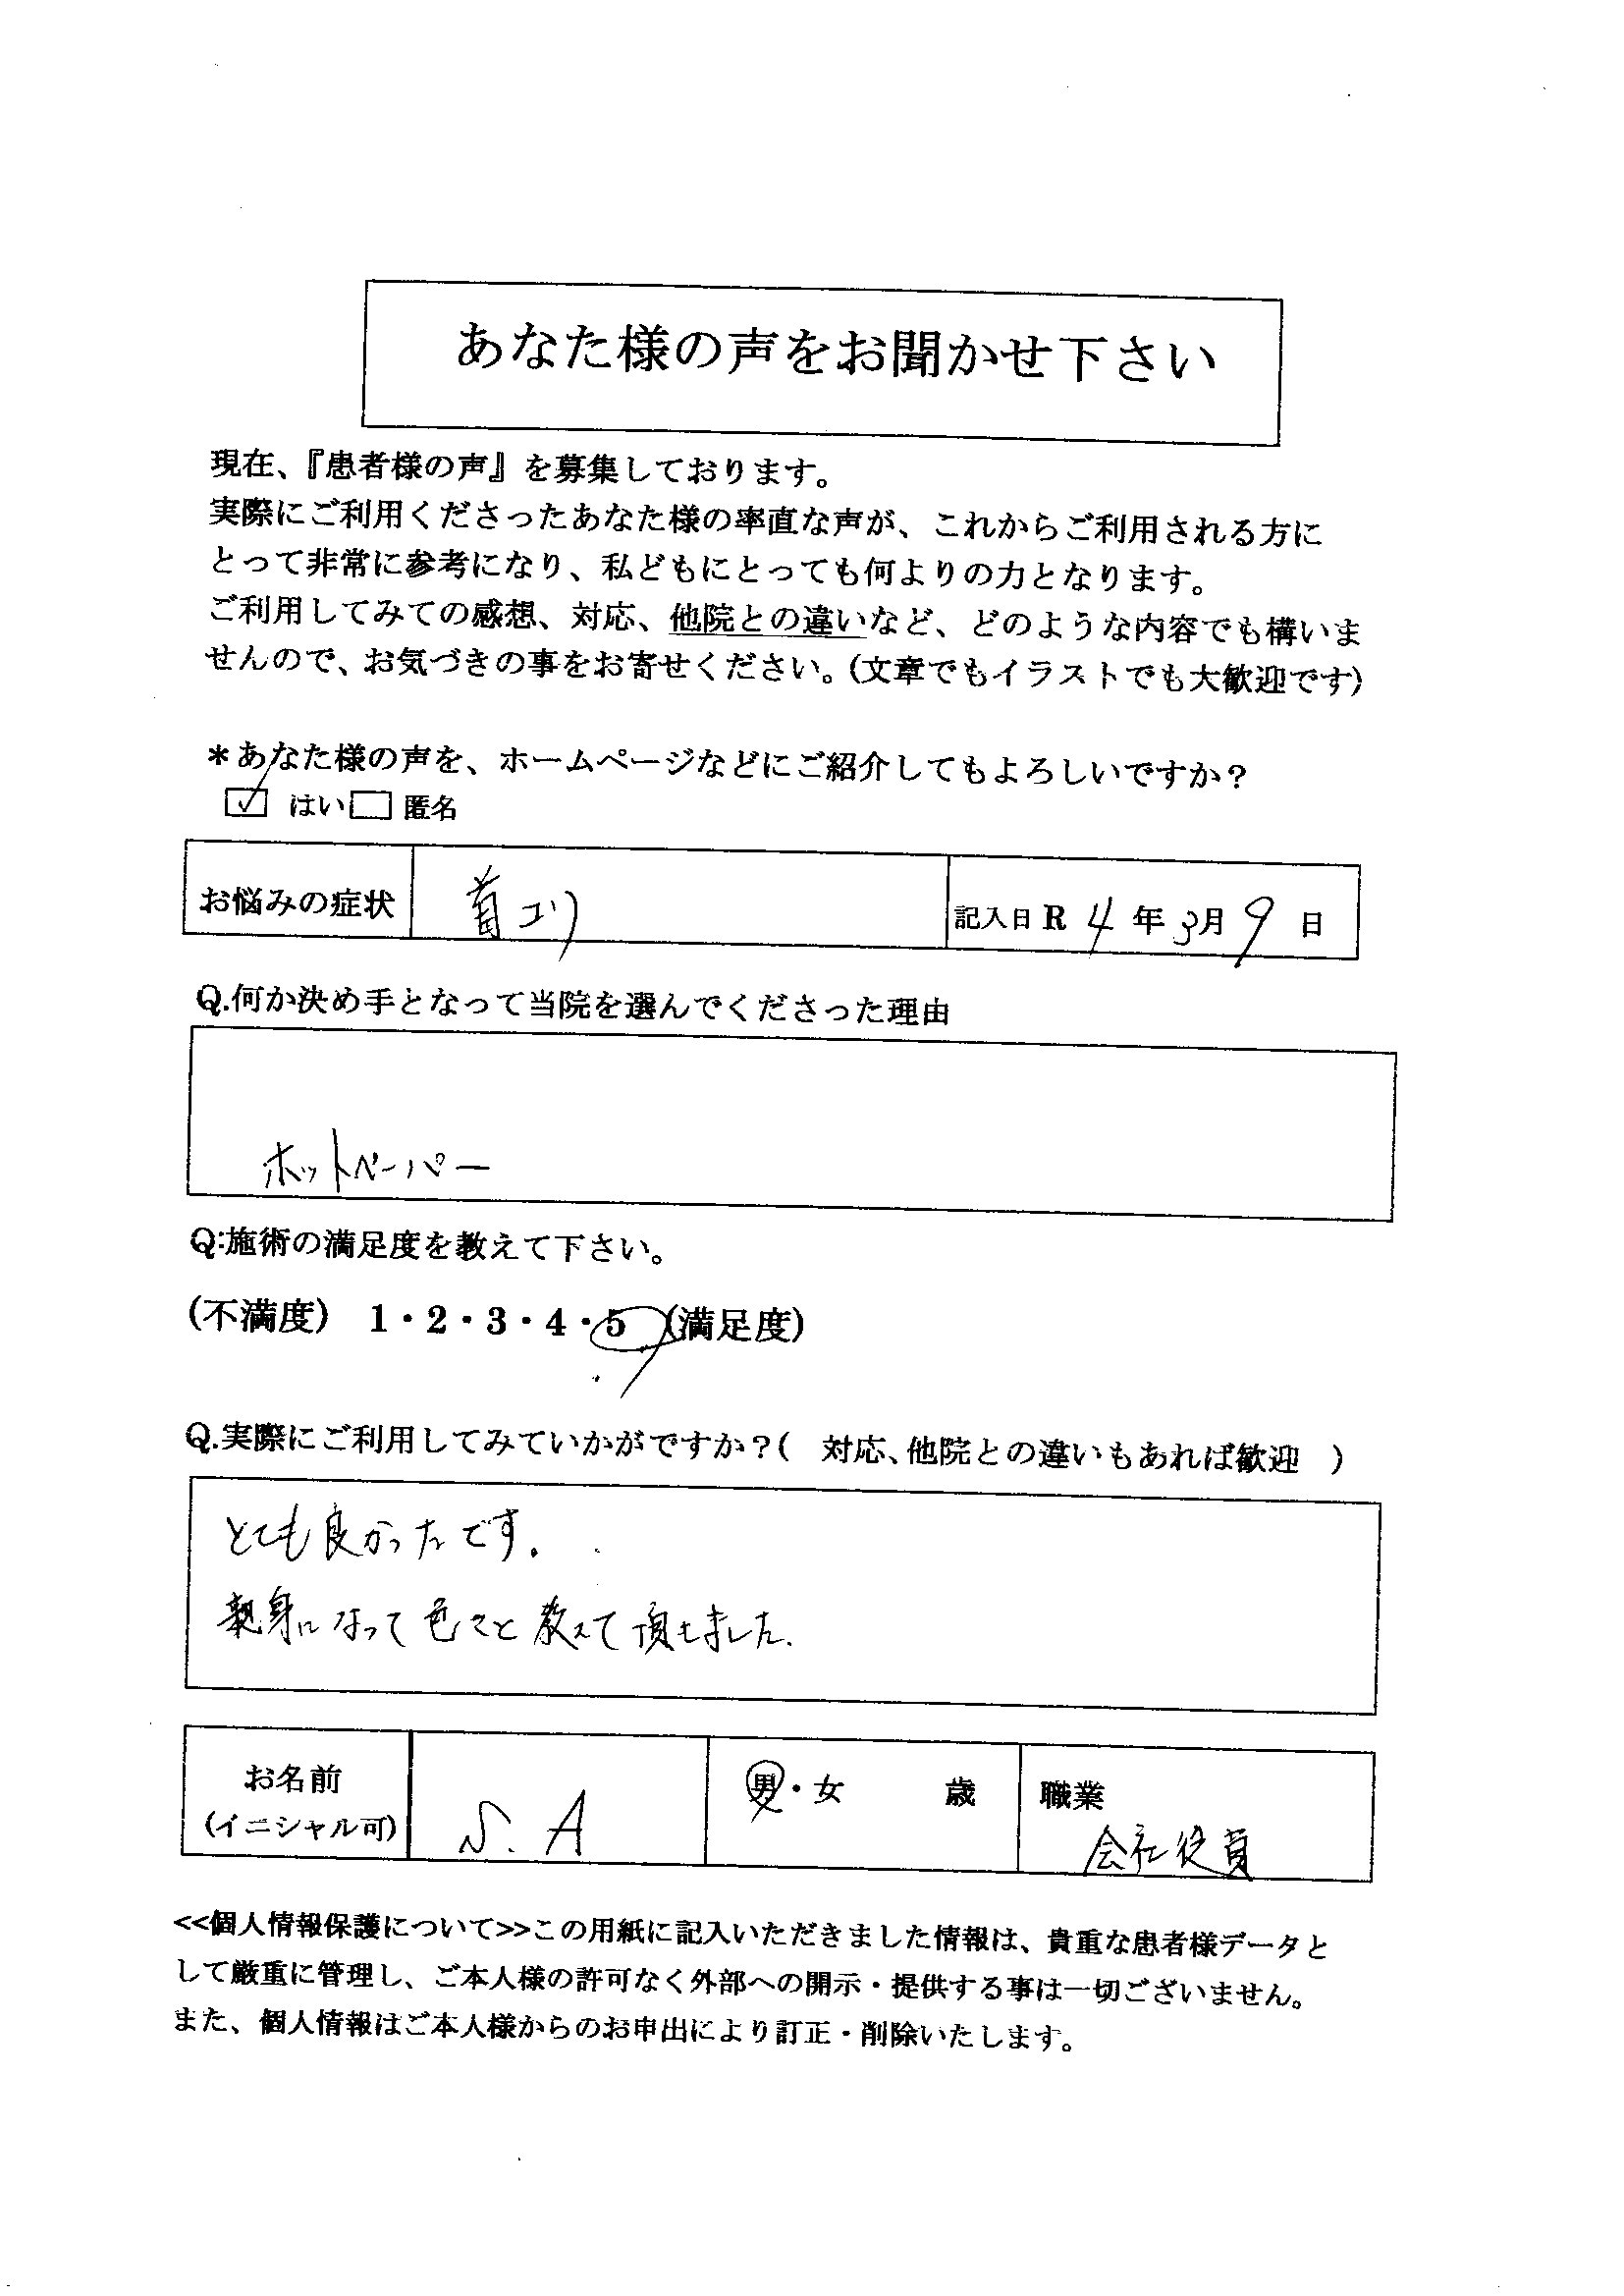 あなた様の声をお聞かせ下さい
現在、『患者様の声』を募集しております。
実際にご利用くださったあなた様の率直な声が、これからご利用される方に
とって非常に参考になり、私どもにとっても何よりの力となります。
ご利用してみての感想、対応、他院との違いなど、どのような内容でも構いま
せんので、お気づきの事をお寄せください。(文章でもイラストでも大歓迎です)
＊あなた様の声を、ホームページなどにご紹介してもよろしいですか？
☑ はい □ 匿名
お悩みの症状 首コリ 記入日 R 4 年 3月 9 日
Q.何か決め手となって当院を選んでくださった理由
ホットペーパー
Q:施術の満足度を教えて下さい。
(不満度) 1・2・3・4・5 (満足度)
Q.実際にご利用してみていかがですか？( 対応、他院との違いもあれば歓迎 )
とても良かったです.
親身になって色々と教えて頂きました.
お名前 男・女 歳 職業
(イニシャル可) S.A 会社役員
<<個人情報保護について>>この用紙に記入いただきました情報は、貴重な患者様データと
して厳重に管理し、ご本人様の許可なく外部への開示・提供する事は一切ございません。
また、個人情報はご本人様からのお申出により訂正・削除いたします。